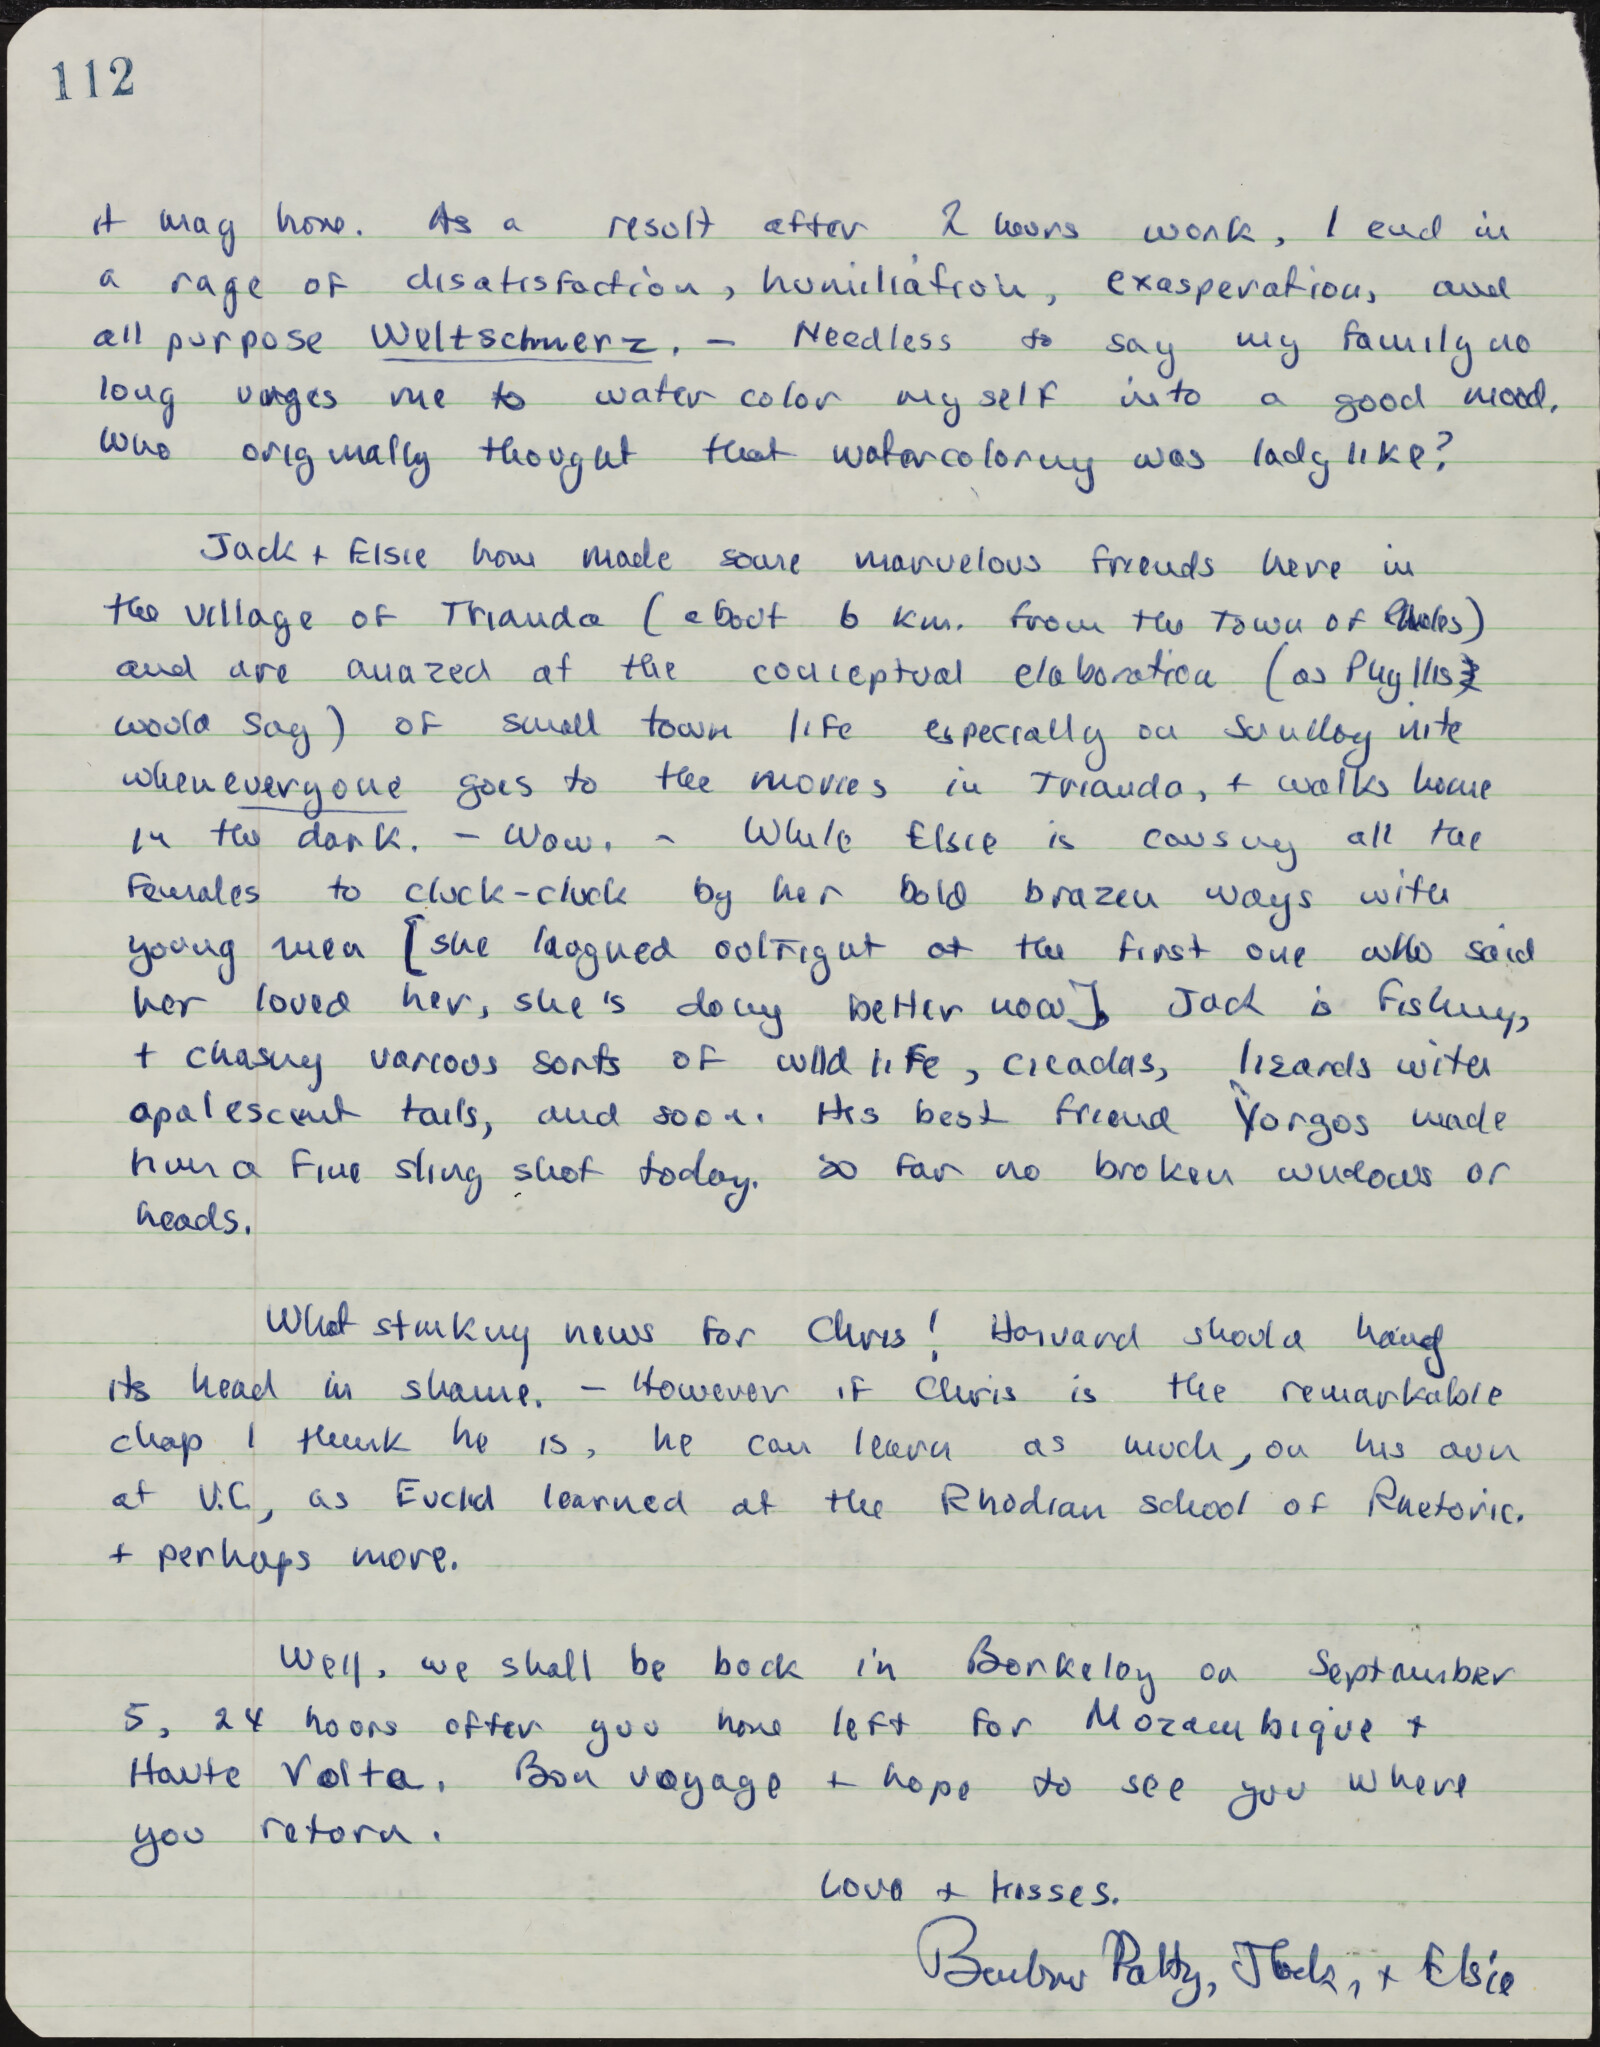 112
it may have. As a result after 2 hours work, I end in
a rage of disatisfaction, humiliation, exasperation, and
all purpose Weltschmerz. - Needless to say my family no
long urges me to water color myself into a good mood.
Who originally thought that watercoloring was lady like?
Jack + Elsie have made some marvelous friends here in
the village of Trianda (about 6 km. from the town of Rhodes)
and are amazed at the conceptual elaboration (as Phyllis
would say) of small town life especially on Sunday nite
when everyone goes to the movies in Trianda, + walks home
in the dark. - Wow. - While Elsie is causing all the
females to cluck-cluck by her bold brazen ways with
young men [she laughed outright at the first one who said
her loved her, she's doing better now], Jack is fishing,
+ chasing various sorts of wild life, cicadas, lizards with
opalescent tails, and so on. His best friend Yorgos made
him a fine sling shot today. So far no broken windows or
heads.
What stinking news for Chris! Harvard should hang
its head in shame. - However if Chris is the remarkable
chap I think he is, he can learn as much, on his own
at U.C., as Euclid learned at the Rhodian school of Rhetoric.
+ perhaps more.
Well, we shall be back in Berkeley on September
5, 24 hours after you have left for Mozambique +
Haute Volta. Bon voyage + hope to see you where
you return.
Love + kisses.
Patty, Jack, + Elsie